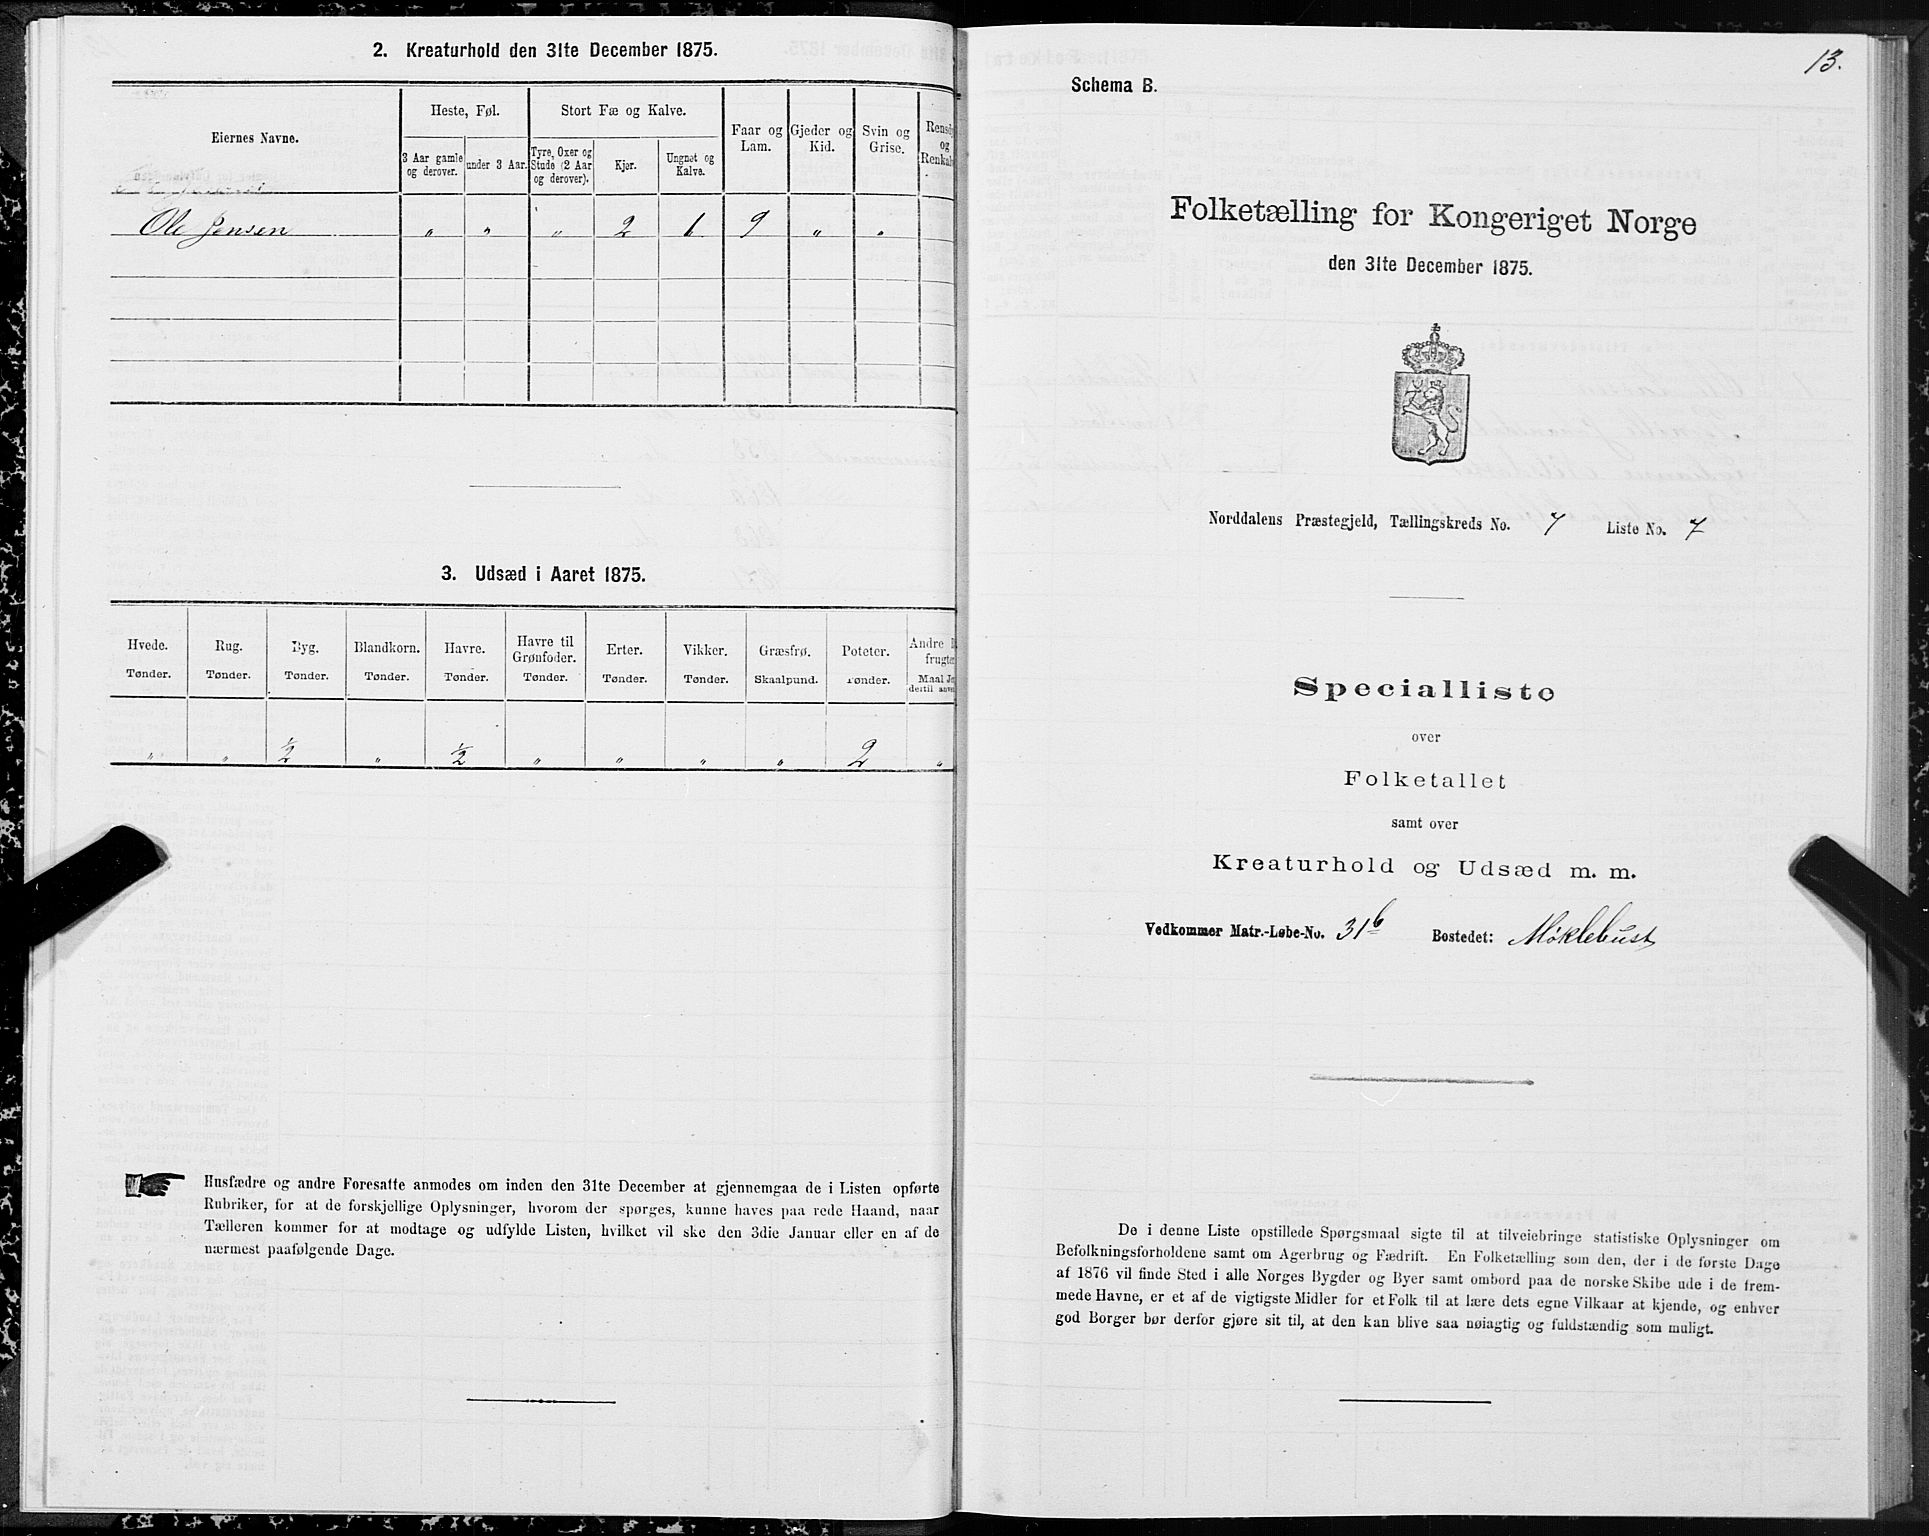 2. Kreaturhold den 31te December 1875.
Eiernes Navne.
Heste, Føl.
Stort Fæ og Kalve.
Faar og Lam.
Gjeder og Kid.
Svin og Grise.
og
3 Aar gamle og derover.
under 3 Aar.
Tyre, Oxer og Stude (2 Aar og derover).
Kjør.
Ungnøt og Kalve.
Ole Jensen " " " 2 1 9 " "
3. Udsæd i Aaret 1875.
Hvede. Rug. Byg. Blandkorn. Havre. Havre til Grønfoder. Erter. Vikker. Græsfrø. Poteter. Andre
Tønder. Tønder. Tønder. Tønder. Tønder. Tønder. Tønder. Tønder. Skaalpund. Tønder. Maal
" " 1/2 " 1/2 " " " " 2 "
Husfædre og andre Foresatte anmodes om inden den 31te December at gjennemgaa de i Listen opførte
Rubriker, for at de forskjellige Oplysninger, hvorom der spørges, kunne haves paa rede Haand, naar
Tælleren kommer for at modtage og udfylde Listen, hvilket vil ske den 3die Januar eller en af de
nærmest paafølgende Dage.
13.
Schema B.
Folketælling for Kongeriget Norge
den 31te December 1875.
Norddalens Præstegjeld, Tællingskreds No. 7 Liste No. 7
Specialliste
over
Folketallet
samt over
Kreaturhold og Udsæd m. m.
Vedkommer Matr.-Løbe-No. 31b Bostedet: Møklebust
De i denne Liste opstillede Spørgsmaal sigte til at tilveiebringe statistiske Oplysninger om
Befolkningsforholdene samt om Agerbrug og Fædrift. En Folketælling som den, der i de første Dage
af 1876 vil finde Sted i alle Norges Bygder og Byer samt ombord paa de norske Skibe ude i de frem-
mede Havne, er et af de vigtigste Midler for et Folk til at lære dets egne Vilkaar at kjende, og enhver
god Borger bør derfor gjøre sit til, at den kan blive saa nøiagtig og fuldstændig som muligt.